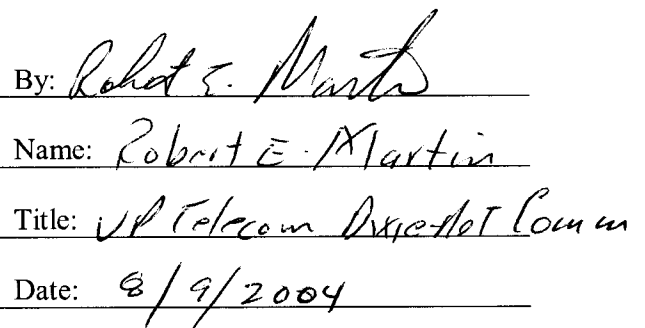 By: Robert E. Martin
Name: Robert E. Martin
Title: VP Telecom Dixie-Net Comm
Date: 8/9/2004